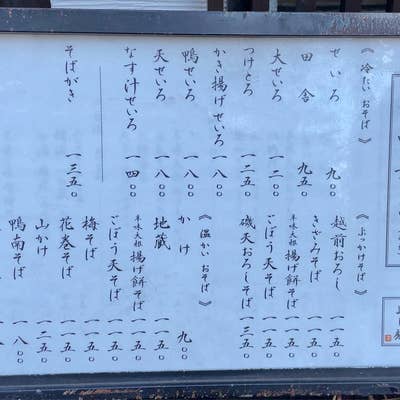 《冷たいおそば》
せいろ 九〇〇
田舎 九五〇
大せいろ 一二〇〇
つけとろ 一二五〇
かき揚げせいろ 一八〇〇
鴨せいろ 一八〇〇
天せいろ 一八〇〇
なす汁せいろ 一四〇〇
そばがき 一三五〇
《ぶっかけそば》
越前おろし 一一五〇
きざみそば 一一五〇
辛味大根揚げ餅そば 一一五〇
ごぼう天そば 一一五〇
磯天おろしそば 一三五〇
《温かいおそば》
かけ 九〇〇
地蔵 一一五〇
辛味大根揚げ餅そば 一一五〇
ごぼう天そば 一一五〇
梅そば 一一五〇
花巻そば 一一五〇
山かけ 一二五〇
鴨南そば 一八〇〇